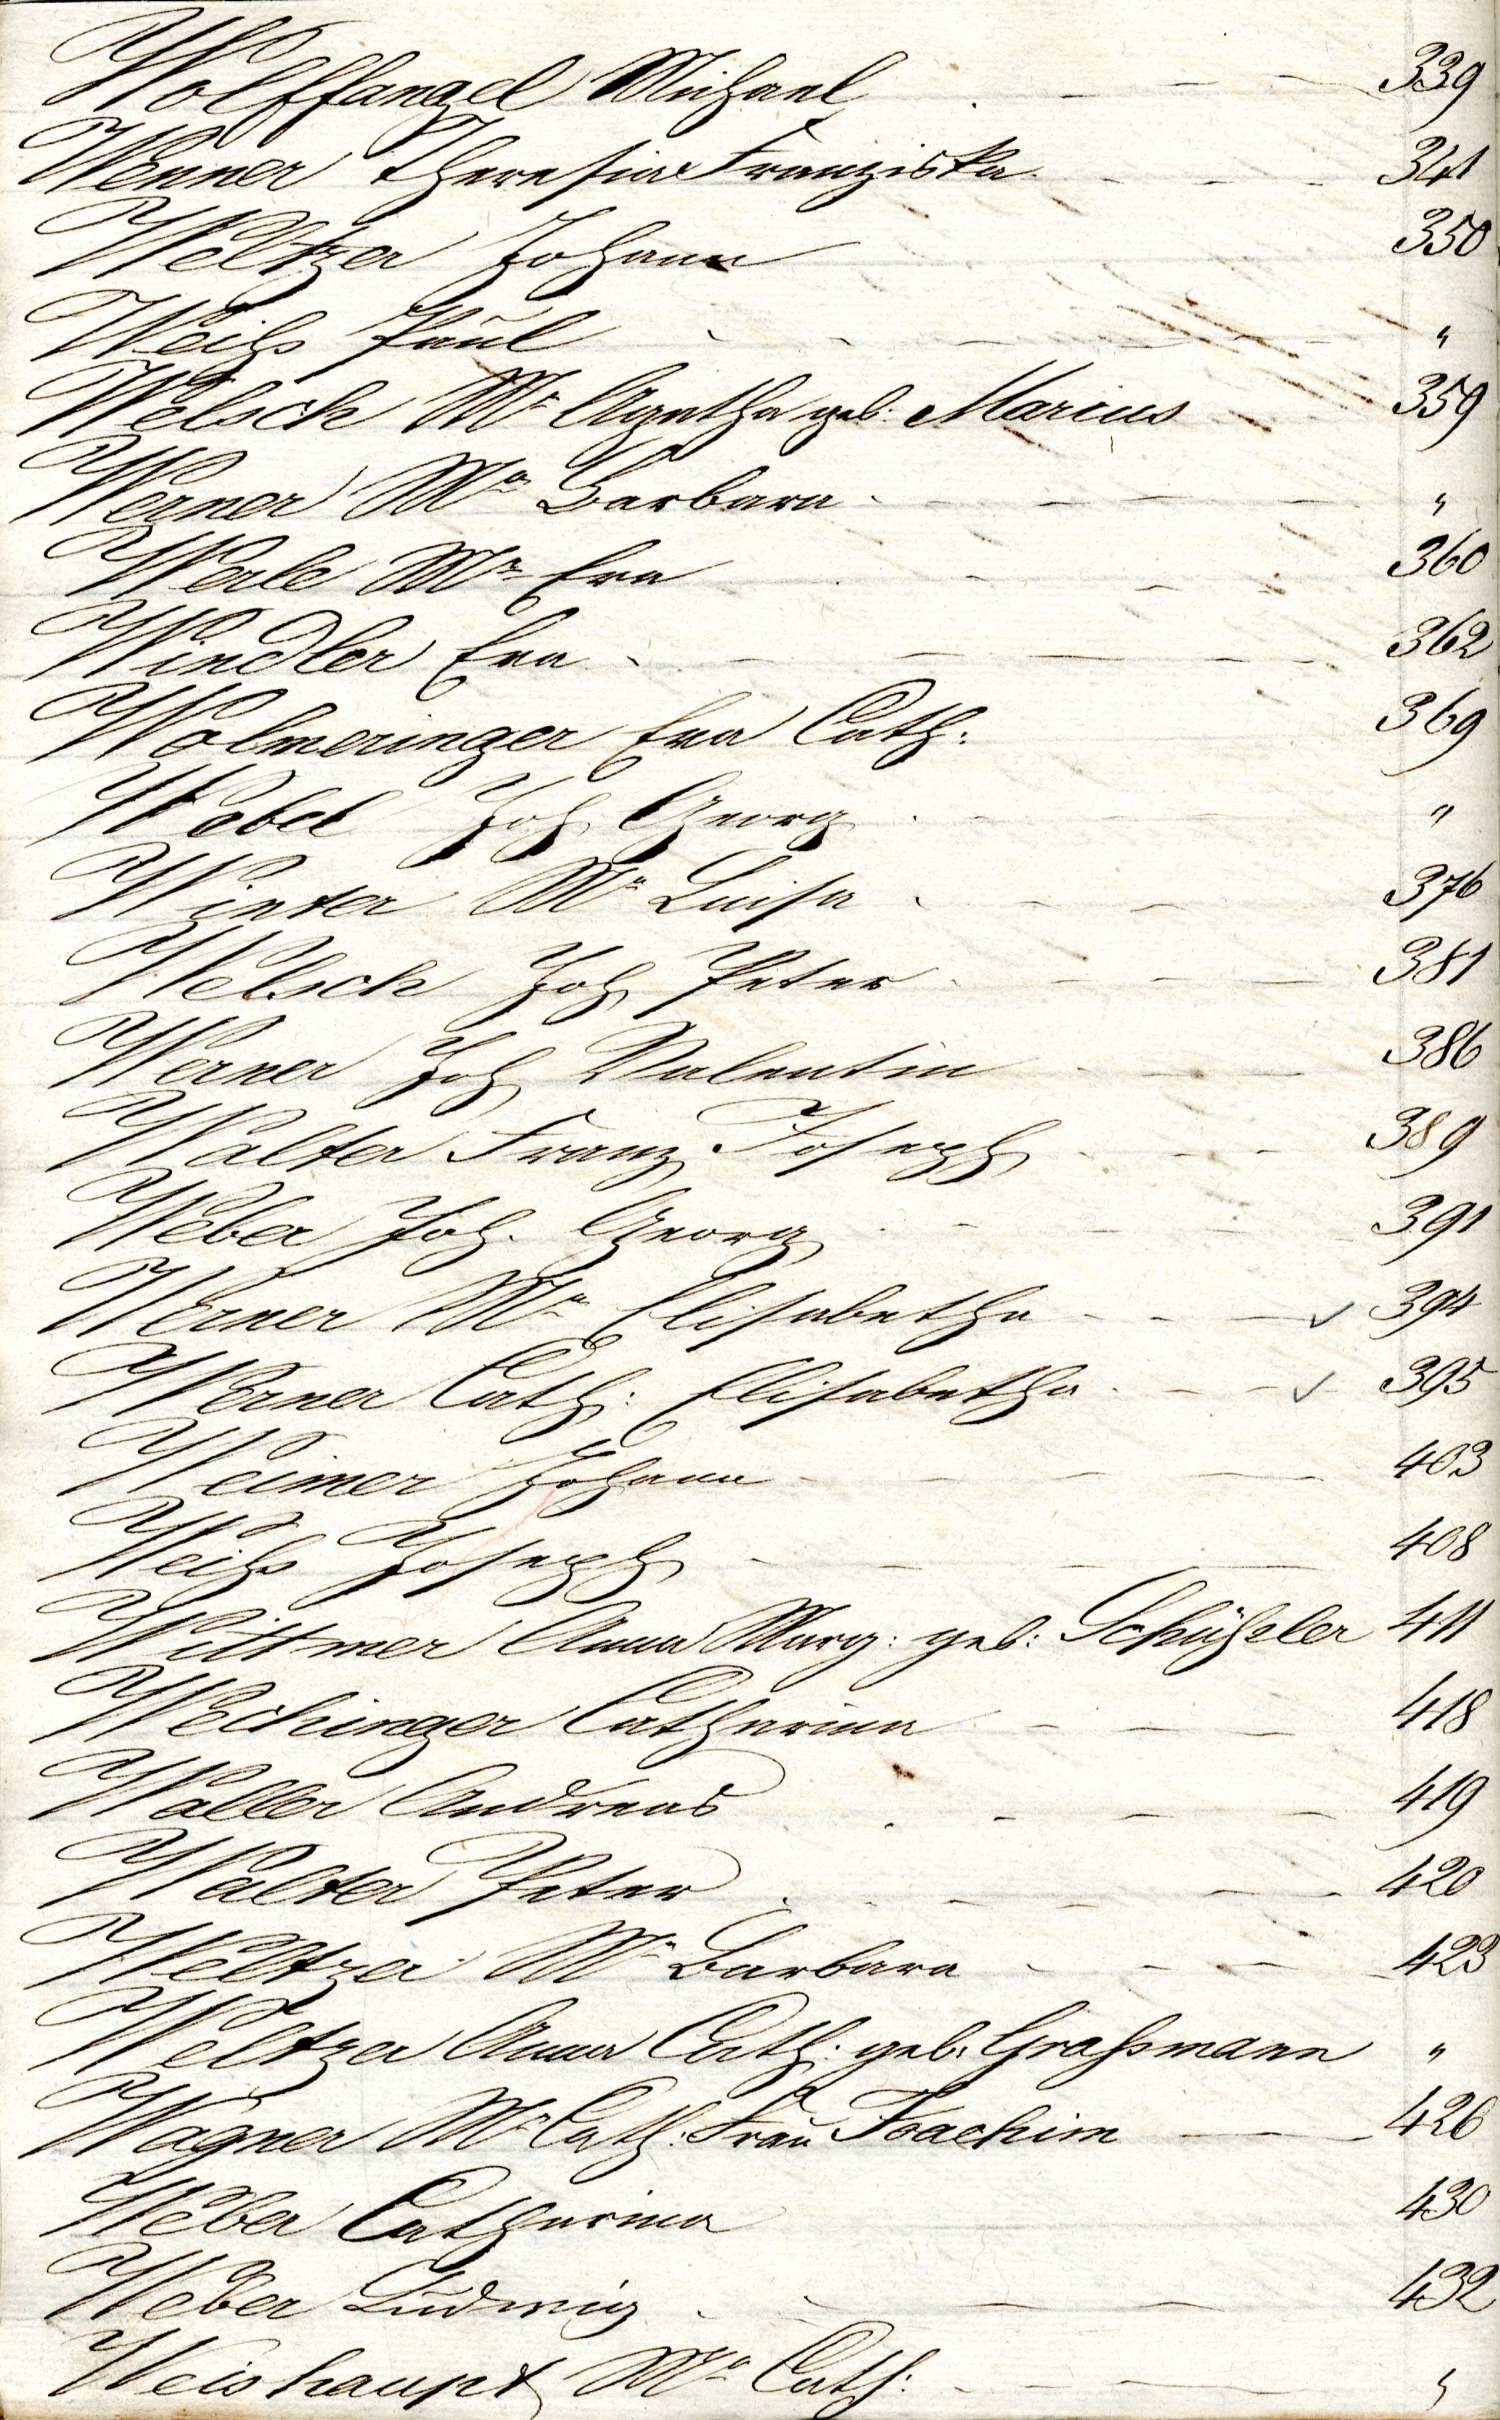 Wolffangel Michael - - 339
Wenner Theresia Franziska - - - 341
Weltzer Johann 350
Weiß Paul - - - - - "
Welsch Mᵃ Agatha geb: Marius 359
Werner Mᵃ Barbara - - - - "
Werle Mᵃ Eva - - - 360
Windler Eva - - - - - 362
Wolmeringer Eva Cath: 369
Wobel Joh Georg - - - - "
Winter Mᵃ Luisa - - - 376
Welsch Joh Peter - - - - 381
Werner Joh Valentin - - - 386
Walter Franz Joseph - - - 389
Weber Joh. Georg - - - - 391
Werner Mᵃ Elisabetha - - - ✓ 394
Werner Cath: Elisabetha - - - ✓ 395
Weimer Johann - - - - 403
Weiß Joseph - - - - 408
Wittmer Anna Marg: geb: Schüßler 411
Wechinger Catharina - - - 418
Waller Andreas - - - - 419
Walter Peter - - - - - 420
Weltzer Mᵃ Barbara - - - - 423
Weltzer Anna Cath: geb. Graßmann "
Wagner Mᵃ Cath: Frau Joachim - - 426
Weber Catharina 430
Weber Ludwig - - - - 432
Weishaupt Mᵃ Cath: - - - "